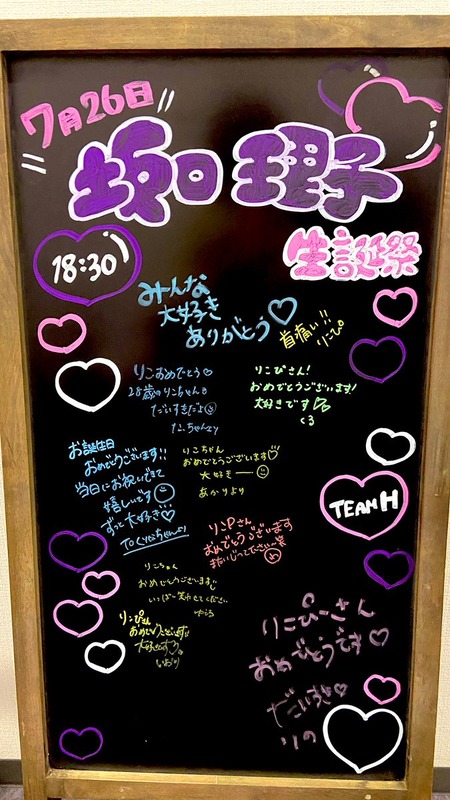 7月26日
坂口理子
18:30
生誕祭
みんな
大好き
ありがとう♡
首痛い!!
りこぴ
りこおめでとう♡
28歳のりこちゃんも
だいすきだよ
りこぴさん!
おめでとうございます!
大好きです
くる
お誕生日
おめでとうございます!!
当日にお祝いできて
嬉しいです
ずっと大好き♡
りこちゃん
おめでとうございます♡
大好きー
あかりより
TEAM H
りこPさん
おめでとうございます
りこちゃん
おめでとうございます
いっぱい笑わせてください
りこぴさん
おめでとうございます!!
大好きです
りこぴーさん
おめでとうです♡
だいすき♡
りの